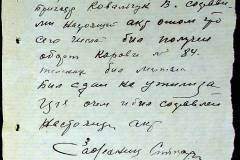 бригадир Ковальчук В. создав
ли настоящий акт о том что
сего числа был получен
оборот Коровы № 84.
теленок был мертвый
был сдан на утилиза-
цию о чем и был составлен
настоящий акт